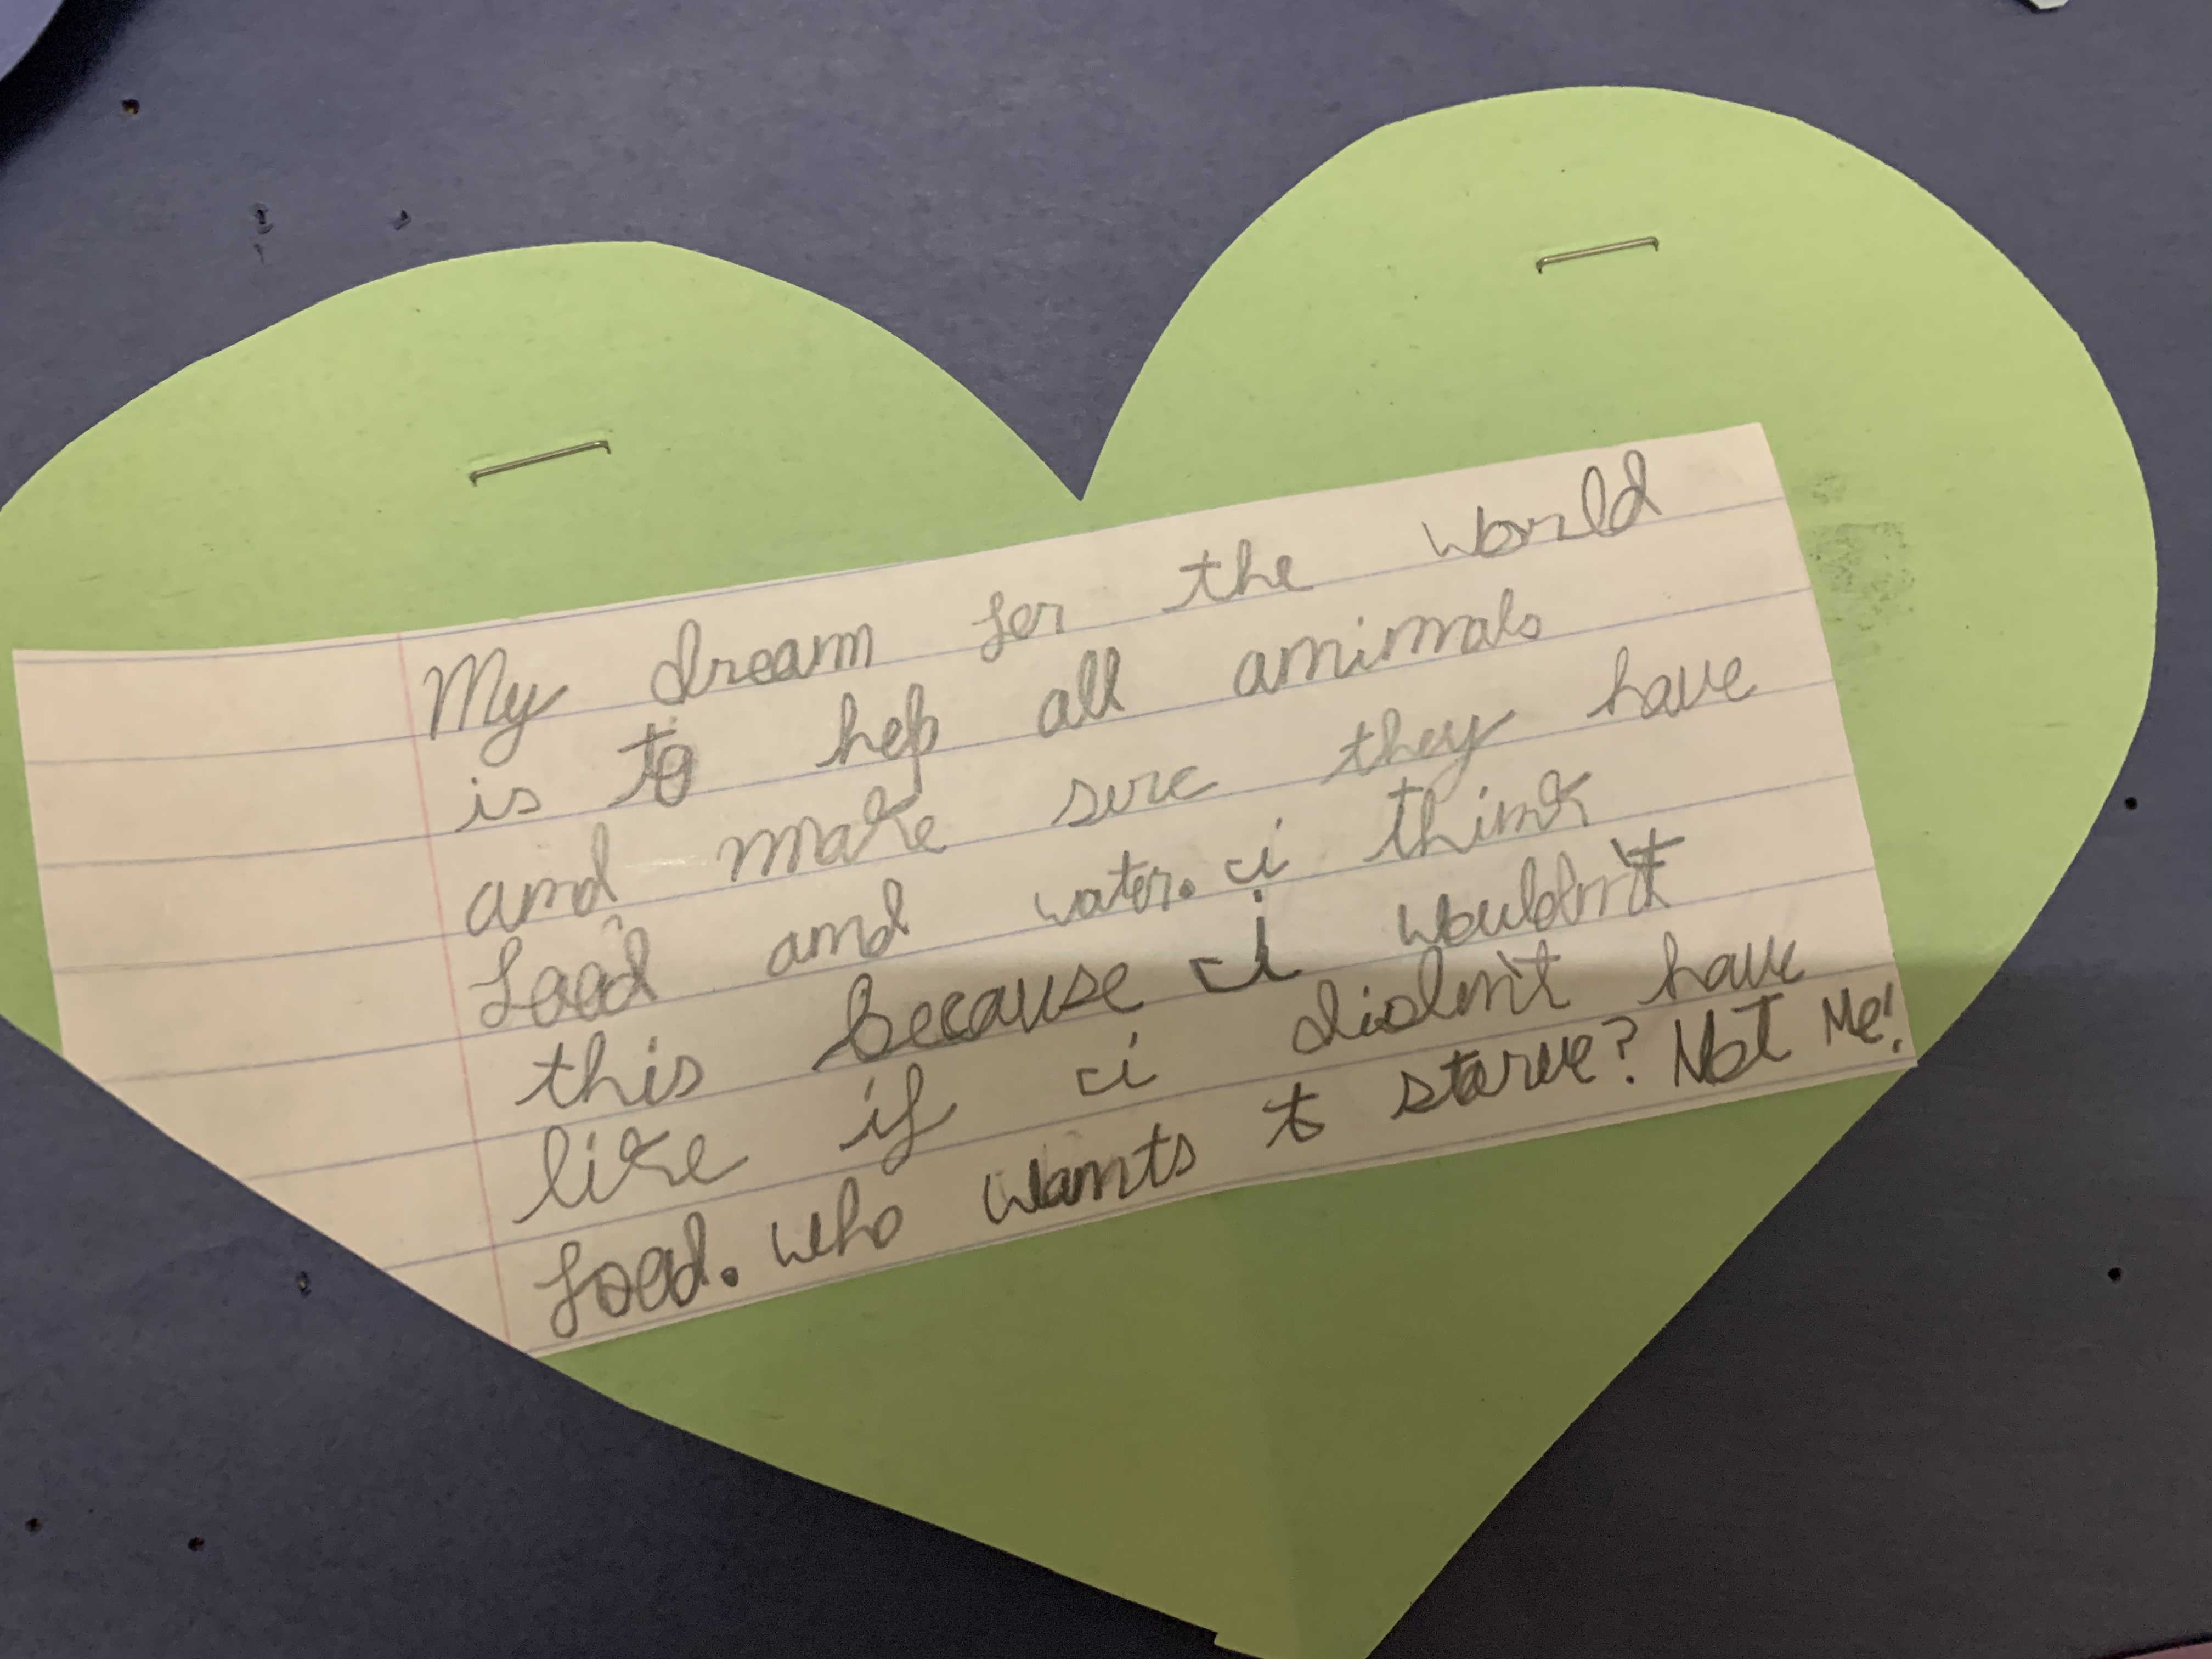 My dream for the world
is to help all animals
and make sure they have
food and water. i think
this because i wouldn't
like if i didn't have
food. who wants to starve? Not Me!